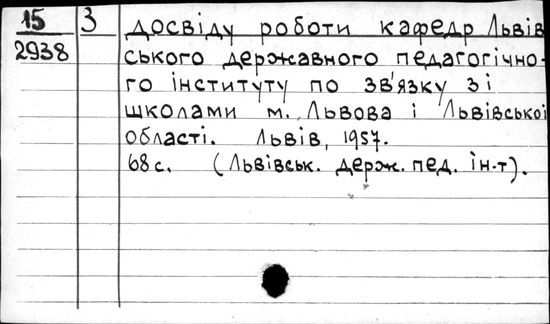 15 З досвіду роботи кафедр Львів
2938 ського державного педагогічно-
го інституту по зв'язку зі
школами м. Львова і Львівської
області. Львів, 1957.
68 с. (Львівськ. держ. пед. ін-т).